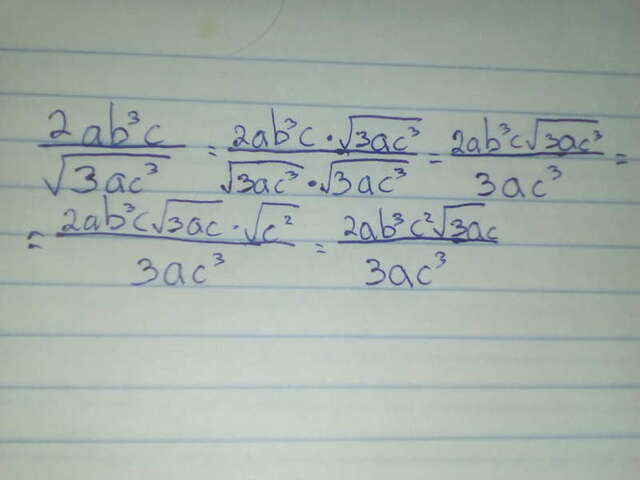 2ab³c/√(3ac³) = 2ab³c·√(3ac³)/(√(3ac³)·√(3ac³)) = 2ab³c√(3ac³)/(3ac³) =
= 2ab³c√(3ac)·√(c²)/(3ac³) = 2ab³c²√(3ac)/(3ac³)